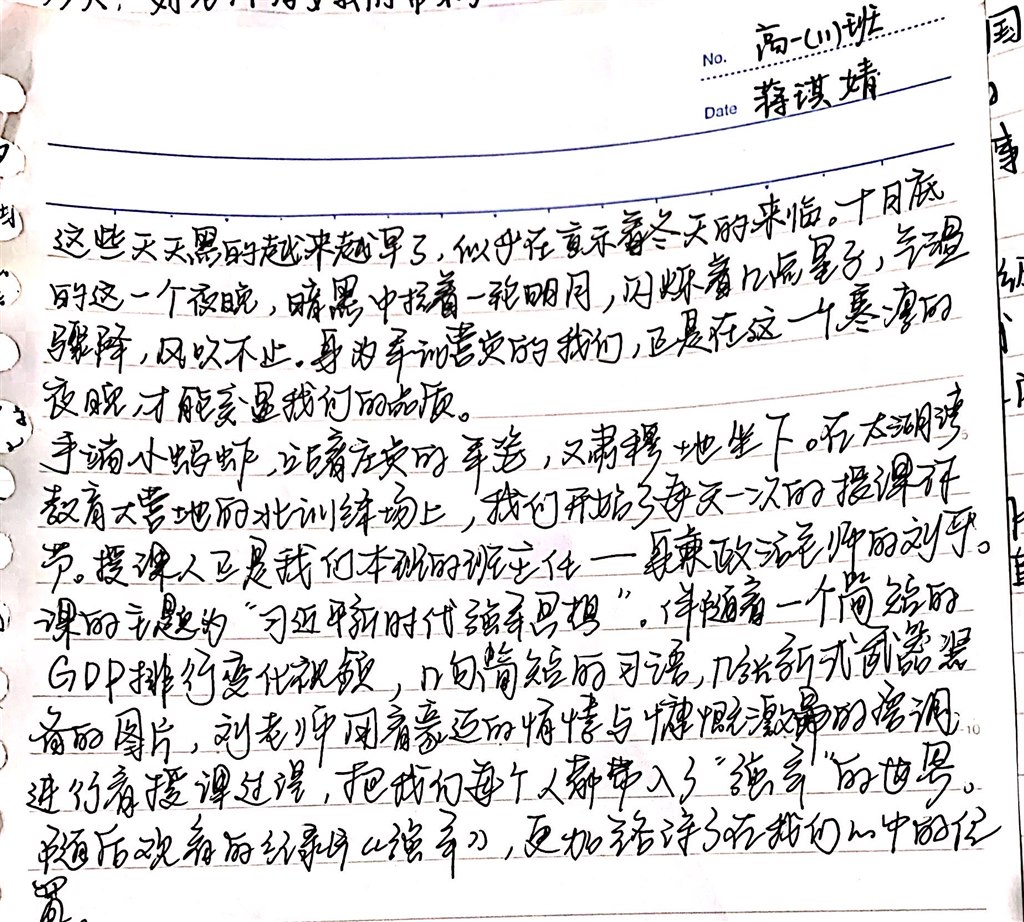 No. 高一(11)班
Date 蒋琪婧
这些天天黑的越来越早了，似乎在宣示着冬天的来临。十月底
的这一个夜晚，暗黑中挂着一轮明月，闪烁着几点星子，气温
骤降，风吹不止。身为军训营员的我们，正是在这一个寒凄的
夜晚，才能彰显我们的品质。
手端小蚂蚱，踏着庄贞的军姿，又肃穆地坐下。在太湖湾
教育大营地的北训练场上，我们开始了每天一次的授课环
节。授课人正是我们本班的班主任——身兼政治老师的刘平。
课的主题为“习近平新时代强军思想”。伴随着一个简短的
GDP排行变化视频，几句简短的习语，几张新式武器装
备的图片，刘老师用着豪迈的情愫与慷慨激昂的语调
进行着授课过程，把我们每个人都带入了“强军”的世界。
随后观看的纪录片《强军》，更加诠译了在我们心中的位
置。